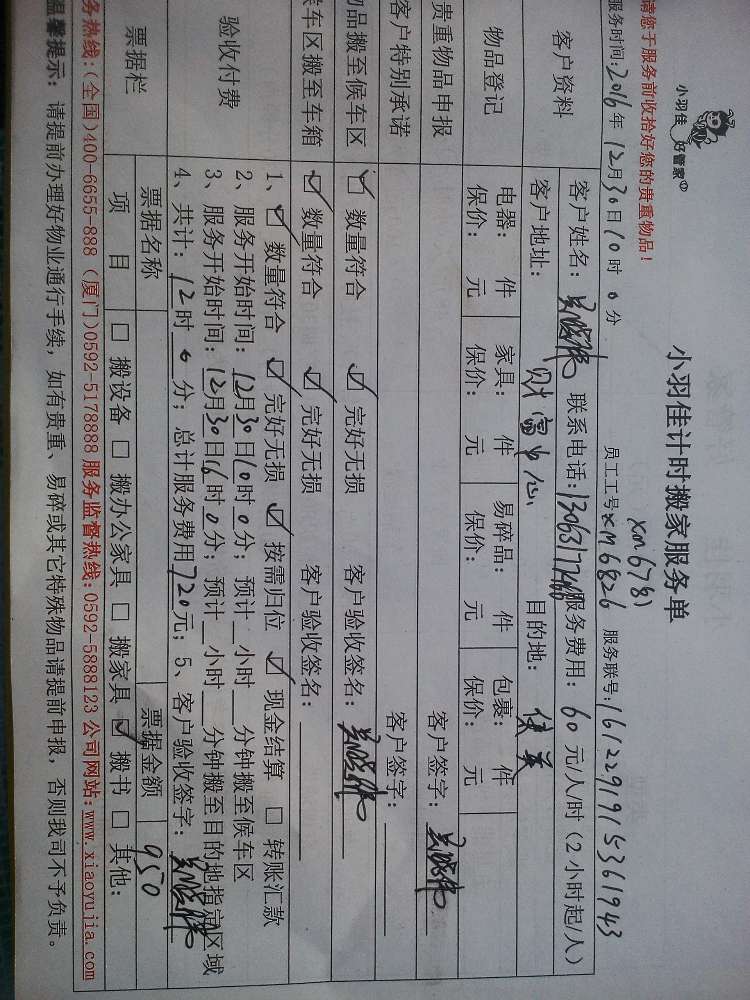 小羽佳 好管家
小羽佳计时搬家服务单
请您于服务前收拾好您的贵重物品!
xm6781
服务时间:2016年12月30日10时0分 员工工号xm6826 服务联号:1612291915361943
客户资料 客户姓名: 联系电话:13063177 服务费用:60元/人/时(2小时起/人)
客户地址:财富中心 目的地:
物品登记 电器: 件 家具: 件 易碎品: 件 包裹: 件
保价: 元 保价: 元 保价: 元 保价: 元
贵重物品申报 客户签字:
客户特别承诺 客户签字:
物品搬至候车区 ☑ 数量符合 ☑ 完好无损 客户验收签名:
候车区搬至车箱 ☑ 数量符合 ☑ 完好无损 客户验收签名:
验收付费 1、☑ 数量符合 ☑ 完好无损 ☑ 按需归位 ☑ 现金结算 □ 转账汇款
2、服务开始时间:12月30日10时0分; 预计__小时__分钟搬至候车区
3、服务开始时间:12月30日16时0分; 预计__小时__分钟搬至目的地指定区域
4、共计:12时0分; 总计服务费用720元; 5、客户验收签字:
票据栏 票据名称 票据金额 950
项 目 □ 搬设备 □ 搬办公家具 □ 搬家具 ☑ 搬书 □ 其他:
务热线:(全国)400-6655-888 (厦门)0592-5178888 服务监督热线:0592-5888123 公司网站:www.xiaoyujia.com
温馨提示: 请提前办理好物业通行手续, 如有贵重、易碎或其它特殊物品请提前申报, 否则我司不予负责。